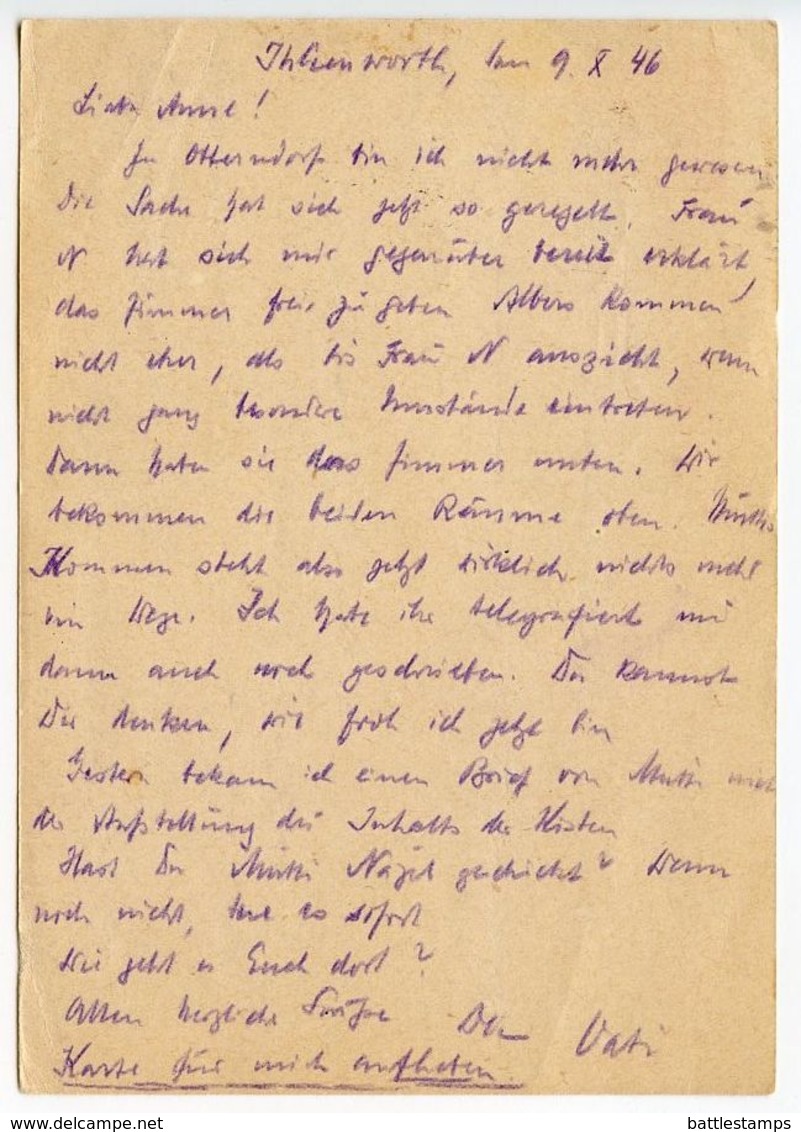 Ihlienworth, den 9. X 46
Liebe Anne!
In Otterndorf bin ich nicht mehr gewesen
Die Sache hat sich jetzt so geregelt. Frau
N hat sich mir gegenüber bereit erklärt,
das Zimmer frei zu geben Albers kommen
nicht eher, als bis Frau N auszieht, wenn
nicht ganz besondere Umstände eintreten.
Dann haben sie das Zimmer unten. Wir
bekommen die beiden Räume oben. Muttis
Kommen steht also jetzt wirklich nichts mehr
im Wege. Ich habe ihr telegrafiert und
dann auch noch geschrieben. Du kannst
Dir denken, wie froh ich jetzt bin
Gestern bekam ich einen Brief von Mutti mit
der Aufstellung des Inhalts der Kisten
Hast Du Mutti Nägel geschickt? Wenn
noch nicht, tue es sofort
Wie geht es Euch dort?
Allen herzliche Grüße Dein Vati
Karte für mich aufheben
battlestamps
www.delcampe.net